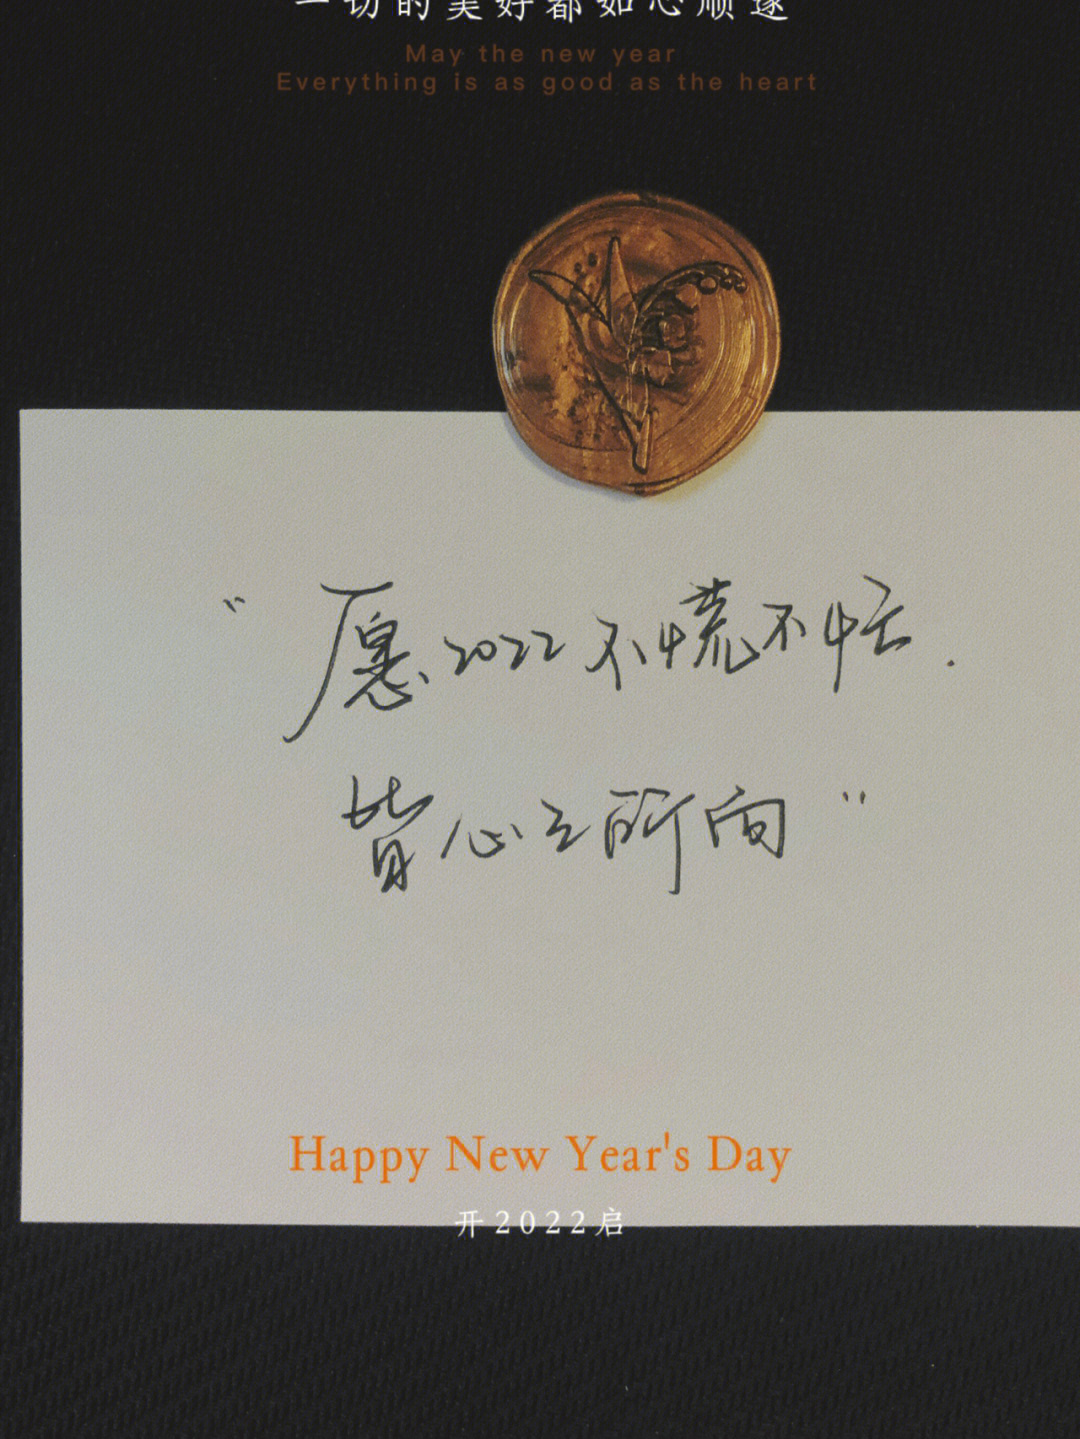 一切的美好都如心顺遂
May the new year
Everything is as good as the heart
"愿2022不慌不忙.
皆心之所向"
Happy New Year's Day
开2022启